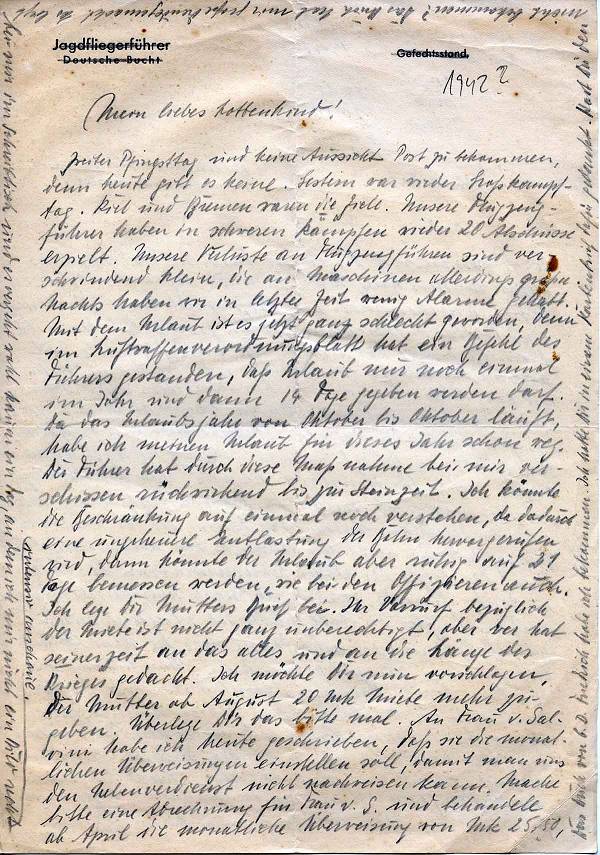 Jagdfliegerführer
Deutsche Bucht
Gefechtsstand,
1942?
Mein liebes Lottenkind!
Zweiter Pfingsttag und keine Aussicht Post zu bekommen,
denn heute gibt es keine. Gestern war wieder Großkampf-
tag. Kiel und Bremen waren die Ziele. Unsere Flugzeug-
führer haben in schweren Kämpfen wieder 20 Abschüsse
erzielt. Unsere Verluste an Flugzeugführern sind ver-
schwindend klein, die an Maschinen allerdings größer.
Nachts haben wir in letzter Zeit wenig Alarme gehabt.
Mit dem Urlaub ist es jetzt ganz schlecht geworden, denn
im Luftwaffenverordnungsblatt hat ein Befehl des
Führers gestanden, daß Urlaub nur noch einmal
im Jahr und dann 14 Tage gegeben werden darf.
Da das Urlaubsjahr von Oktober bis Oktober läuft,
habe ich meinen Urlaub für dieses Jahr schon weg.
Der Führer hat durch diese Maßnahme bei mir ver-
schissen rückwirkend bis zur Steinzeit. Ich könnte
die Beschränkung auf einmal noch verstehen, da dadurch
eine ungeheure Entlastung der Bahn hervorgerufen
wird, dann könnte der Urlaub aber ruhig auf 21
Tage bemessen werden, wie bei den Offizieren auch.
Ich lege Dir Mutters Brief bei. Ihr Vorwurf bezüglich
der Miete ist nicht ganz unberechtigt, aber wer hat
seinerzeit an das alles und an die Länge des
Krieges gedacht. Ich möchte Dir nun vorschlagen,
der Mutter ab August 20 Mk Miete mehr zu
geben. Überlege Dir das bitte mal. An Frau v. Sal-
vini habe ich heute geschrieben, daß sie die monat-
lichen Überweisungen einstellen soll, damit man uns
den Nebenverdienst nicht nachweisen kann. Mache
bitte eine Abrechnung für Frau v. S. und behandele
ab April die monatliche Überweisung von Mk 25,50,
Das Buch von C. D. Friedrich habe ich bekommen. Ich hatte Dir in einem Brief dafür gedankt. Hast Du den
nicht bekommen? Das Buch hat mir große Freude gemacht.